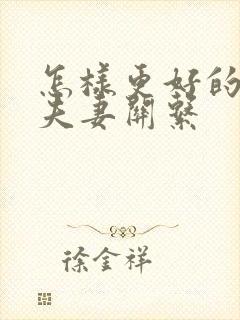 怎样更好的
夫妻關繫
徐金祥